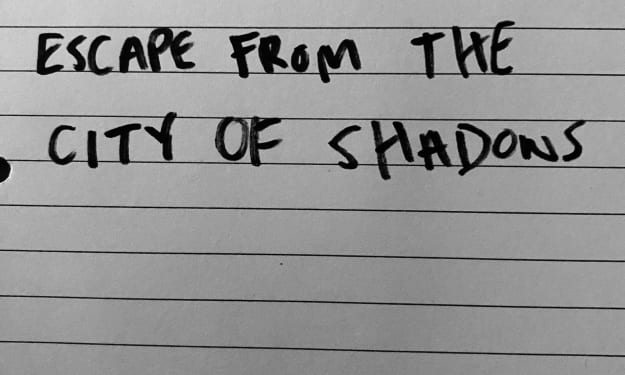 ESCAPE FROM THE
CITY OF SHADOWS